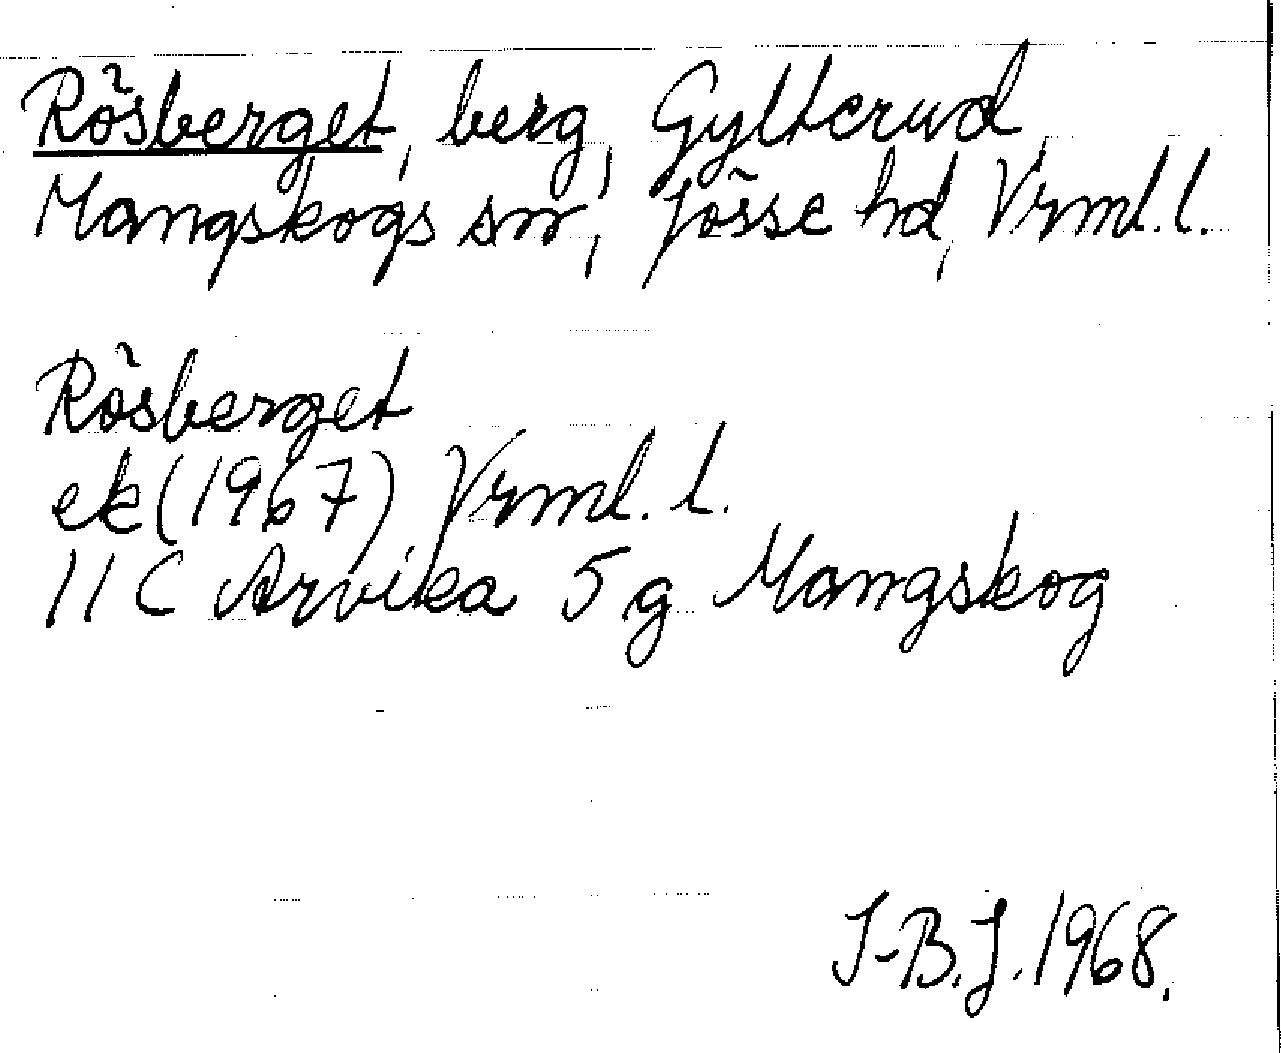 Rösberget, berg, Gylterud
Mangskogs sn, Jösse hd, Vrml. l.
Rösberget
ek (1967) Vrml. l.
11 C Arvika 5 g Mangskog
I-B.J. 1968.